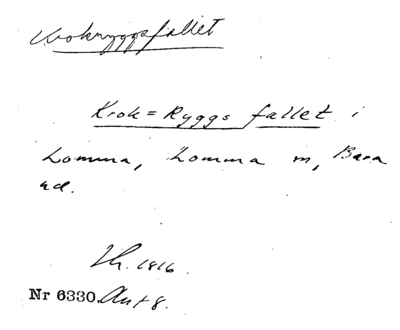 Krokryggsfallet
Krok=Ryggs fallet i
Lomma, Lomma m, Bara
hd.
Lh. 1816.
Nr 6330. Ant 8.